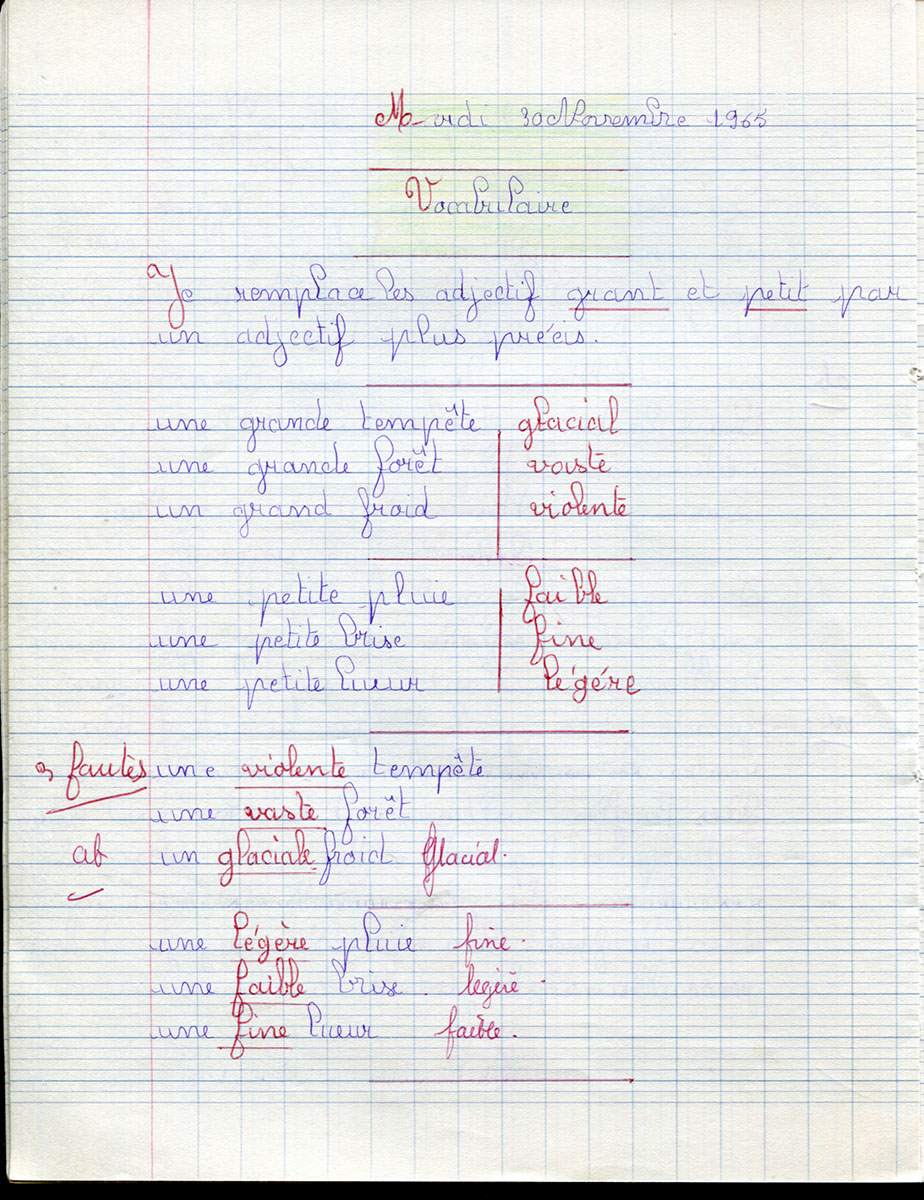 Mardi 30 Novembre 1965
Vocabulaire
a) Je remplace les adjectif grant et petit par
un adjectif plus précis.
une grande tempête glacial
une grande forêt vaste
un grand froid violente
une petite pluie faible
une petite brise fine
une petite lueur légére
fautes une violente tempête
une vaste forêt
ab un glaciale froid Glacial.
une légère pluie fine.
une faible brise. legère.
une fine lueur faible.